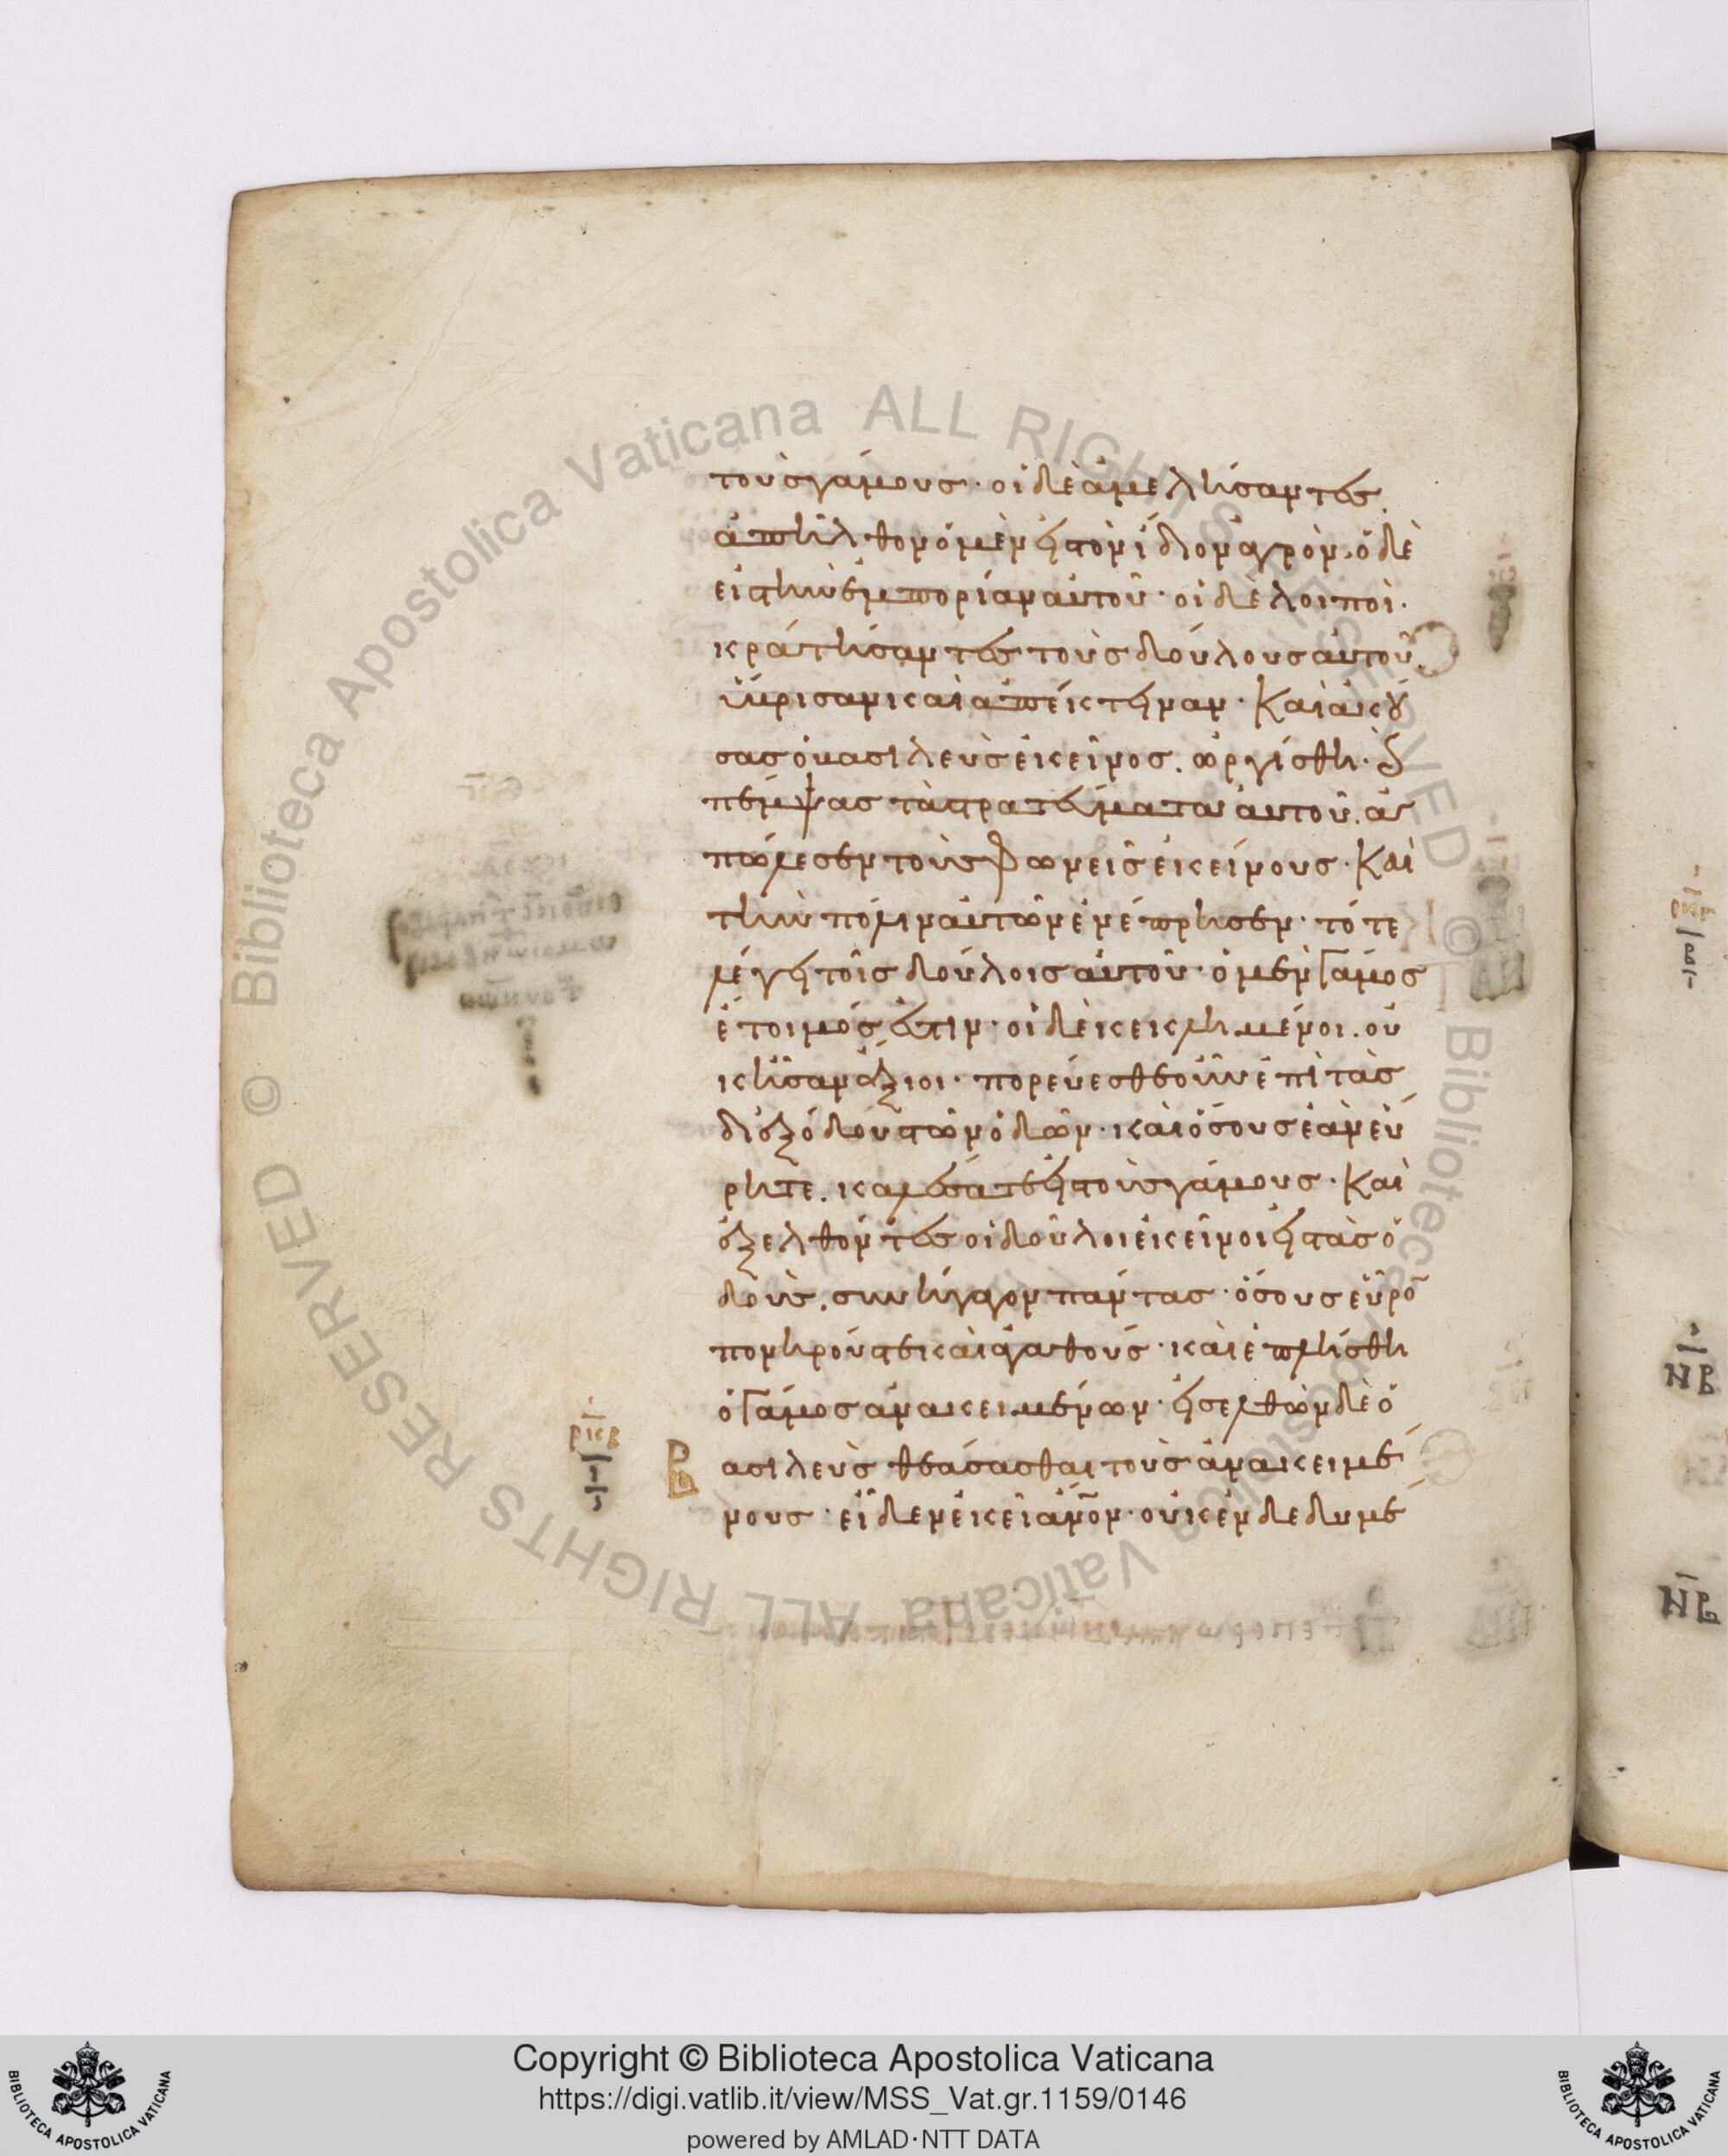 τοὺς γάμους· οἱ δὲ ἀμελήσαντες.
ἀπῆλθον ὁ μὲν εἰς τὸν ἴδιον ἀγρὸν, ὁ δὲ
εἰς τὴν ἐμπορίαν αὐτοῦ· οἱ δὲ λοιποὶ.
κράτήσαντες τοὺς δούλους αὐτοῦ.
ὕβρισαν καὶ ἀπέκτειναν· Καὶ ἀκού
σας ὁ βασιλεὺς ἐκεῖνος. ὠργίσθη· καὶ
πέμψας τὰ στρατεύματα αὐτοῦ. ἀ
πώλεσεν τοὺς φωνεῖς ἐκείνους· Καὶ
τὴν πόλιν αὐτῶν ἐνέπρησεν· τότε
λέγει τοῖς δούλοις αὐτοῦ· ὁ μὲν Γάμος
ἕτοιμός ἐστιν· οἱ δὲ κεκλημένοι. οὐ
κ ἦσαν ἄξιοι· πορεύεσθε οὖν ἐπὶ τὰς
διεξόδους τῶν ὁδῶν· καὶ ὅσους ἐὰν εὕ
ρητε. καλέσατε εἰς τοὺς γάμους· Καὶ
ἐξελθόντες οἱ δοῦλοι ἐκεῖνοι εἰς τὰς ὁ
δοὺς. συνήγαγον πάντας· ὅσους εὗρο̄
πονηρούς τε καὶ ἀγαθούς· καὶ ἐπλήσθη
ὁ Γάμος ἀνακειμένων· εἰσελθὼν δὲ ὁ
ρκβ
Β ασιλεὺς θεάσασθαι τοὺς ἀνακειμέ
ι
νους· εἶδεν ἐκεῖ ἄνο̄ν· οὐκ ἐνδεδυμέ
ρκβ
ΝΒ
ΝΒ
Biblioteca Apostolica Vaticana ALL RIGHTS RESERVED ©
Biblioteca Apostolica Vaticana ALL RIGHTS RESERVED ©
Copyright © Biblioteca Apostolica Vaticana
https://digi.vatlib.it/view/MSS_Vat.gr.1159/0146
powered by AMLAD·NTT DATA
BIBLIOTECA APOSTOLICA VATICANA
BIBLIOTECA APOSTOLICA VATICANA